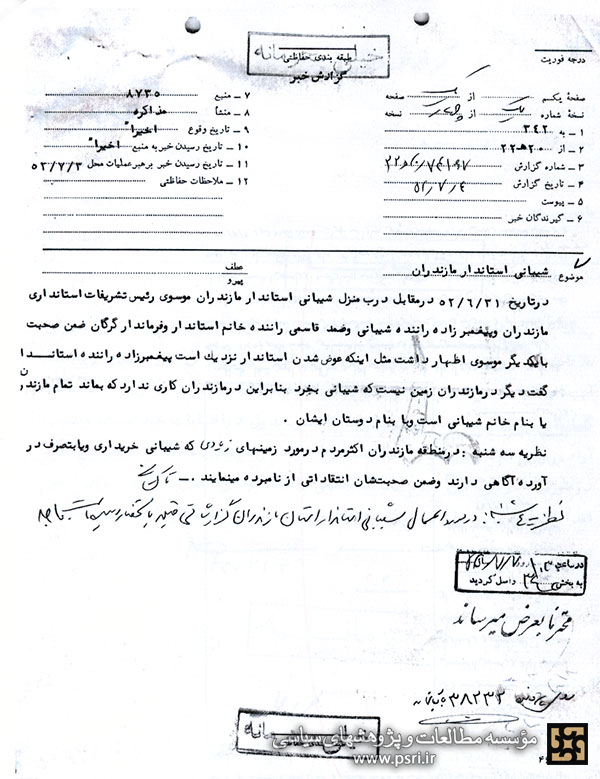 خیلی محرمانه
درجه فوریت
طبقه بندی حفاظتی
گزارش خبر
صفحه یکم از یک صفحه
نسخه شماره یک از چهار نسخه
۱ ـ به ۳۴۲
۲ ـ از ۲۰ ه ۲۲
۳ ـ شماره گزارش
۴ ـ تاریخ گزارش ۵۲/۷/۴
۵ ـ پیوست
۶ ـ گیرندگان خبر
۷ ـ منبع ۸۷۳۵
۸ ـ منشأ مذاکره
۹ ـ تاریخ وقوع اخیرا"
۱۰ ـ تاریخ رسیدن خبر به منبع اخیرا"
۱۱ ـ تاریخ رسیدن خبر برهبر عملیات محل ۵۲/۷/۳
۱۲ ـ ملاحظات حفاظتی
موضوع شیبانی استاندار مازندران
عطف
پیرو
در تاریخ ۵۲/۶/۳۱ در مقابل درب منزل شیبانی استاندار مازندران موسوی رئیس تشریفات استانداری
مازندران و پیغمبر زاده راننده شیبانی و صمد قاسمی راننده خانم استاندار و فرماندار گرگان ضمن صحبت
بایکدیگر موسوی اظهار داشت مثل اینکه عوض شدن استاندار نزدیک است پیغمبرزاده راننده استاندار
گفت دیگر در مازندران زمین نیست که شیبانی بخرد بنابراین در مازندران کاری ندارد که بماند تمام مازندران
یا بنام خانم شیبانی است و یا بنام دوستان ایشان .
نظریه سه شنبه : در منطقه مازندران اکثر مردم در مورد زمینهای زیادی که شیبانی خریداری و یا بتصرف در
آورده آگاهی دارند و ضمن صحبتشان انتقاداتی از نامبرده مینمایند .ـ
در مورد اعمال شیبانی استاندار استان مازندران گزارشاتی قبلا باستحضار رسیده است
در ساعت
به بخش واصل گردید
محترما بعرض میرساند
۳۸۲۳۳
خیلی محرمانه
مؤسسه مطالعات و پژوهشهای سیاسی
www.psri.ir